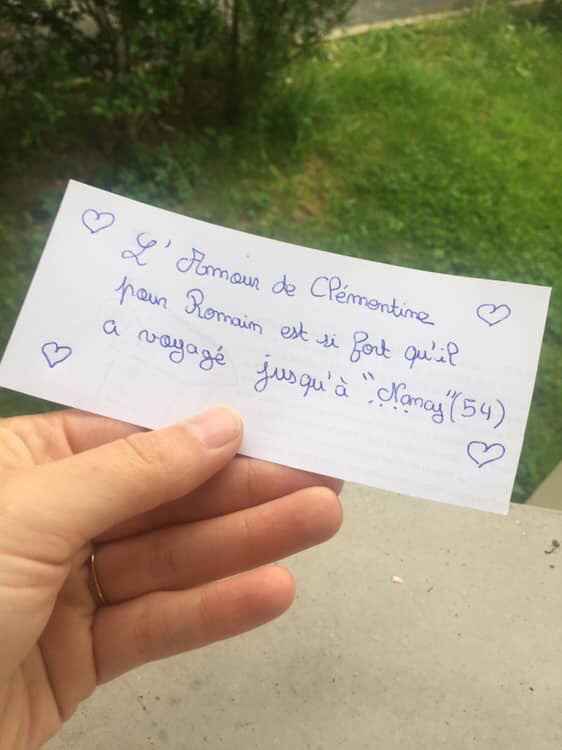 L'Amour de Clémentine
pour Romain est si fort qu'il
a voyagé jusqu'à "Nancy" (54)